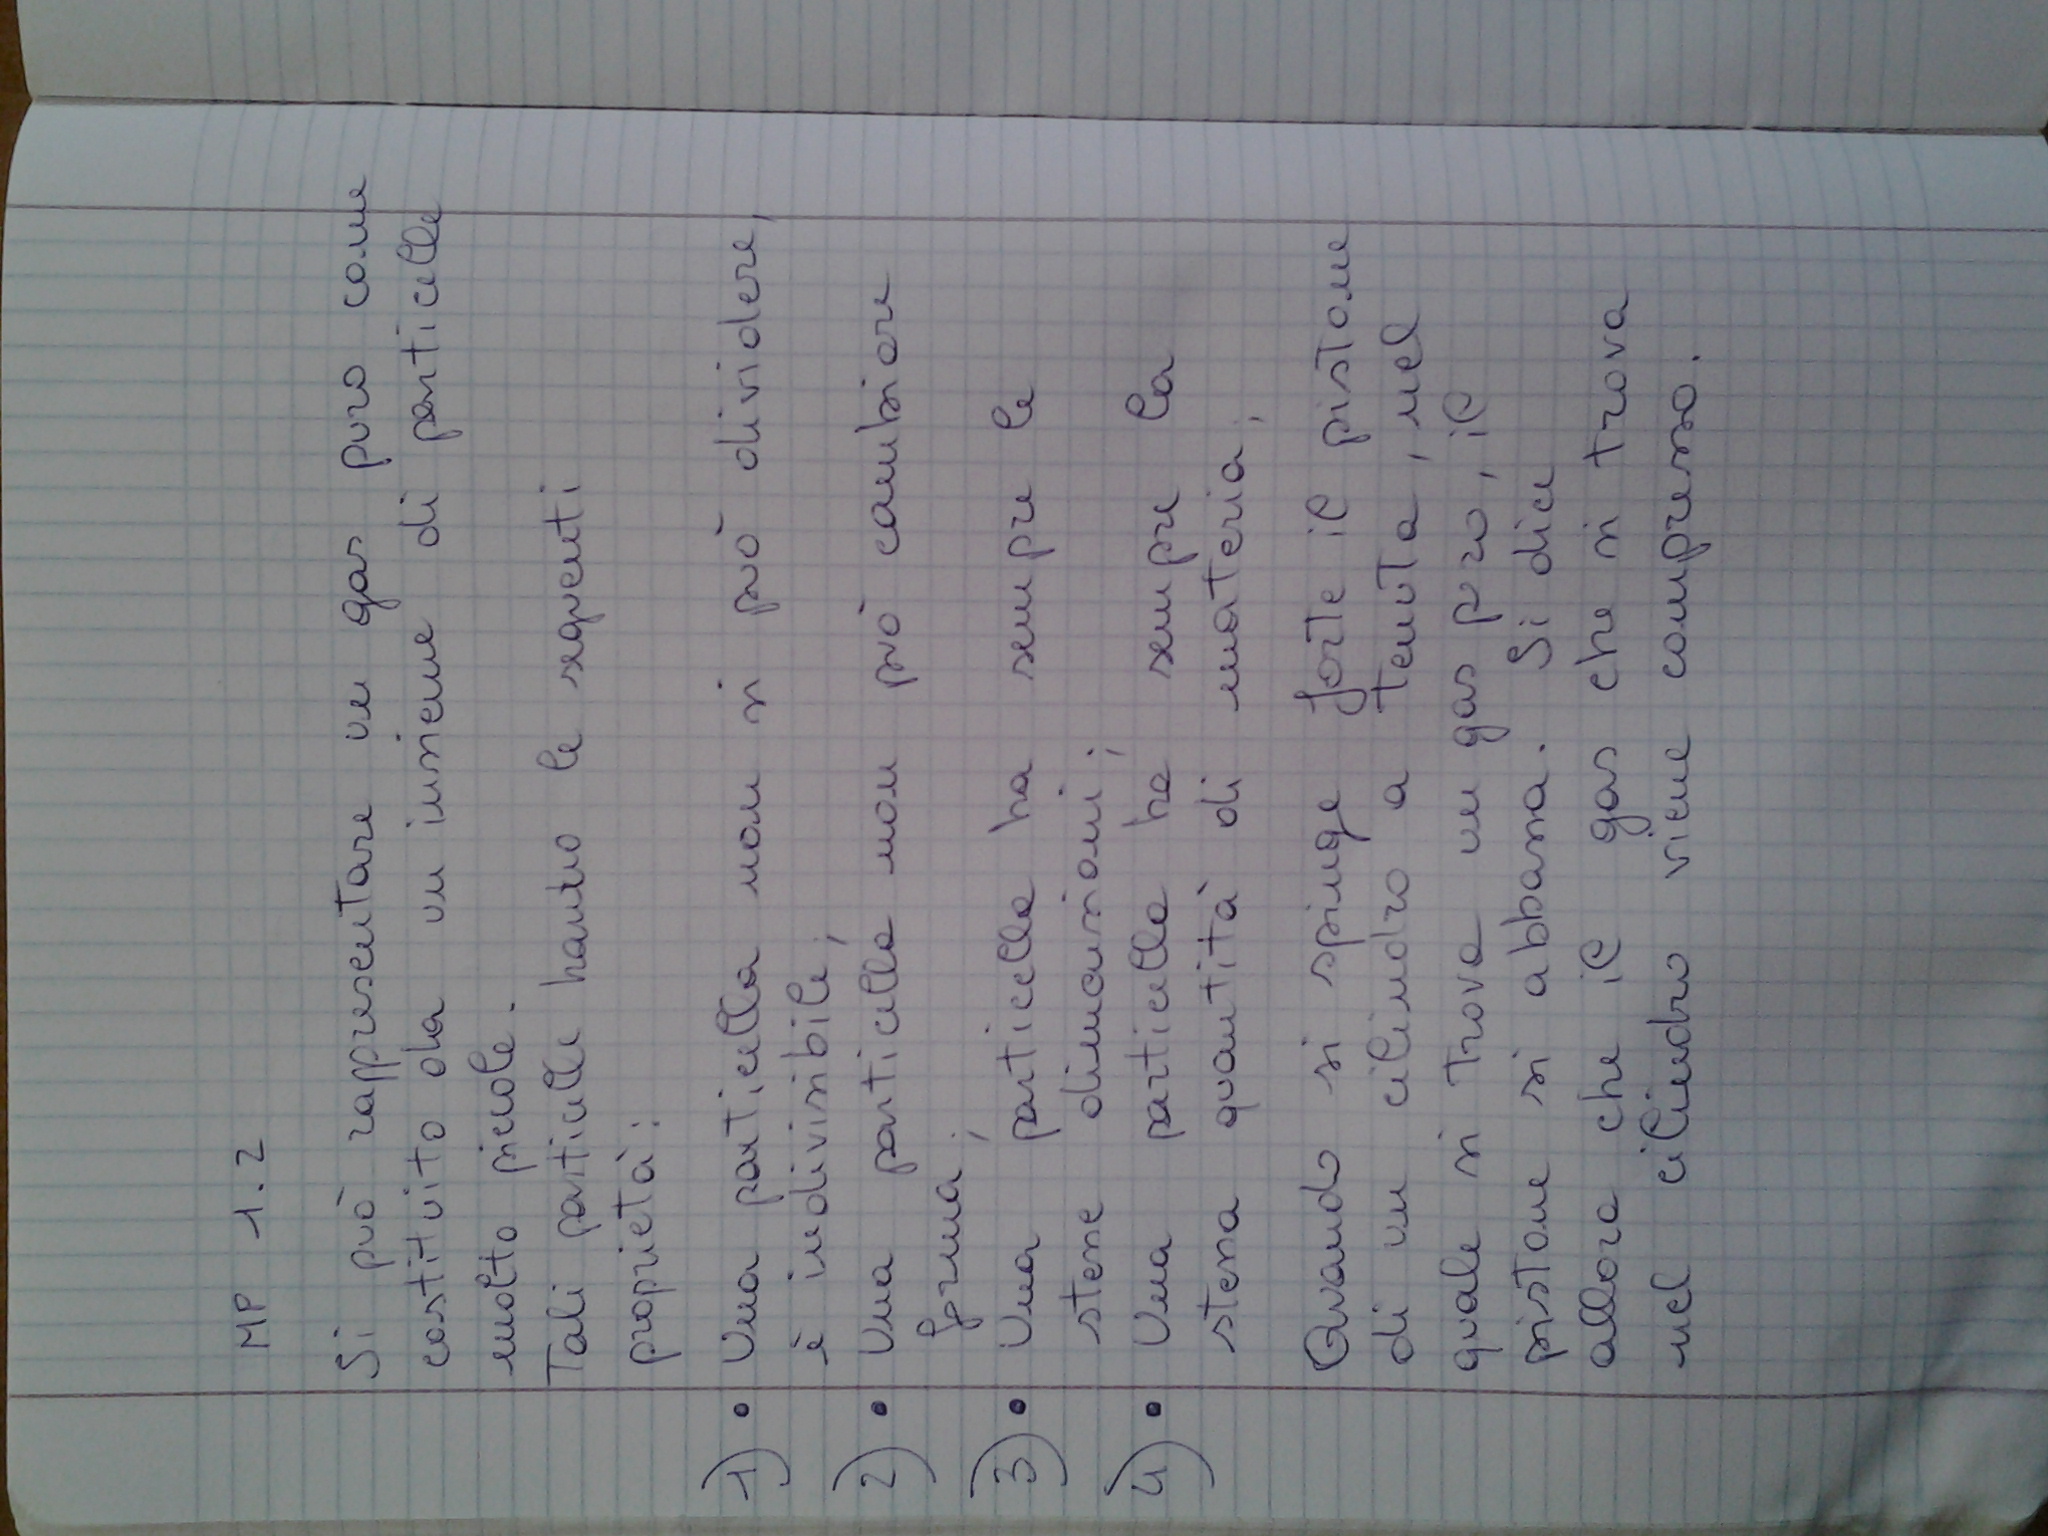 MP 1.2
Si può rappresentare un gas puro come
costituito da un insieme di particelle
molto piccole.
Tali particelle hanno le seguenti
proprietà:
1) • Una particella non si può dividere,
è indivisibile;
2) • Una particella non può cambiare
forma;
3) • Una particella ha sempre le
stesse dimensioni;
4) • Una particella ha sempre la
stessa quantità di materia;
Quando si spinge forte il pistone
di un cilindro a tenuta, nel
quale si trova un gas puro, il
pistone si abbassa. Si dice
allora che il gas che si trova
nel cilindro viene compresso.